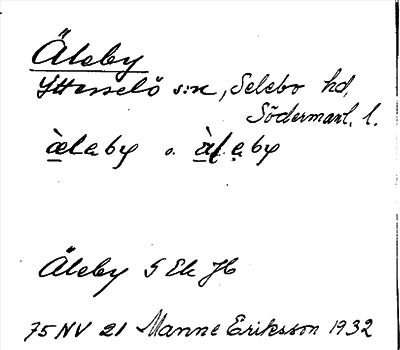 Äleby
Ytterselö s:n, Selebo hd,
Södermanl. l.
ὰlaby o. ὰlạby
Äleby 5 Ek JK
75 NV 21 Manne Eriksson 1932